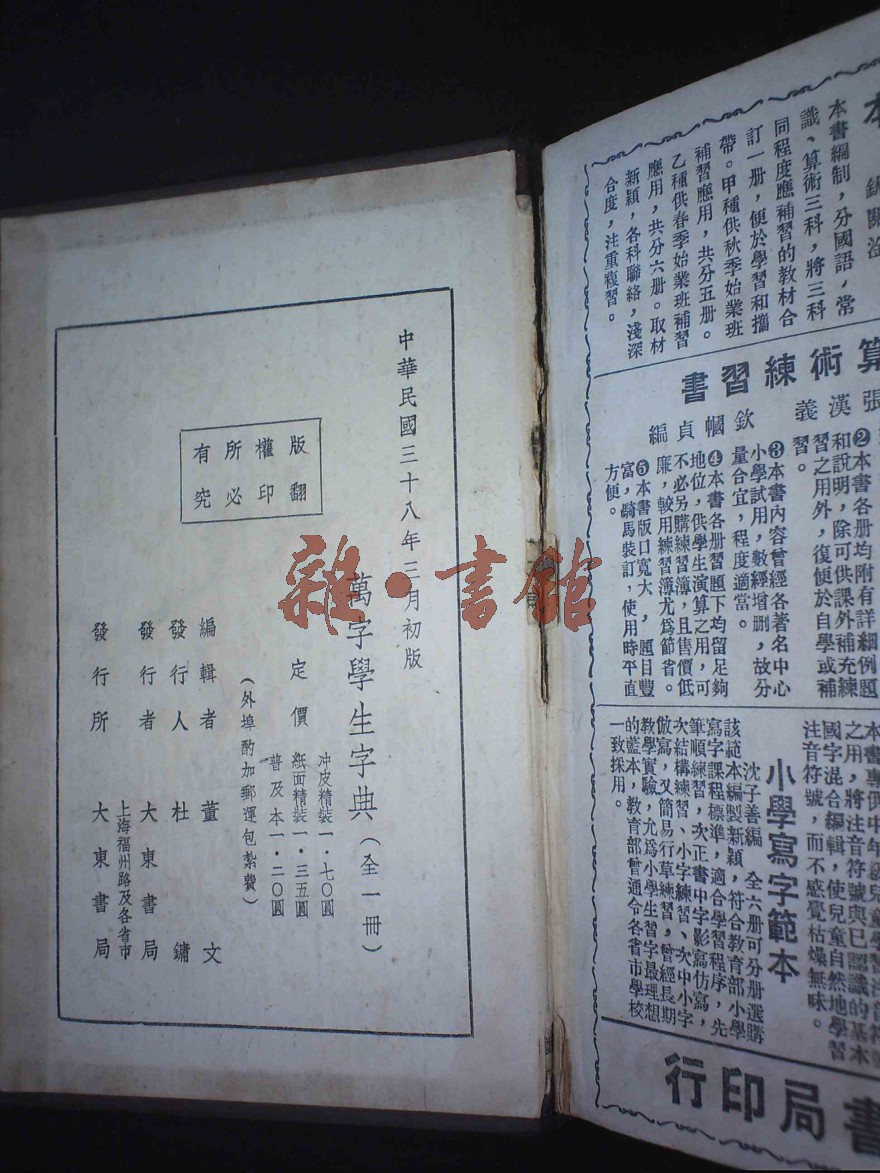 中華民國三十八年三月初版
版權所有
翻印必究
萬字學生字典(全一冊)
定價
冲皮精裝一·七〇圓
紙面精裝一·三五圓
普及本一·二〇圓
(外埠酌加郵運包紮費)
編輯者 董文
發行人 杜鏞
發行者 大東書局
發行所 上海福州路及各省市
大東書局
雜·書館
本書編制,分國語,常
識、算術三科,將三科
同程度應補習的教材合
訂一册,便於學習和攜
帶。甲種供秋季始業班
補習應用,共分五册。
乙種供春季始業班補習
應用,共分六册。取材
新穎,各科聯絡,淺深
合度,注重複習。
算術練習書
張漢義 欽幗貞編
❷本書各册均附有詳細例題
和說明,除可供課外補充練
習之用外,復便於自學或補
習。
❸本書內容曾經各著名中心
小學試用,數經增删,故分
量合宜,程度適當。
❹本書各册習題下均留足夠
地位,供學生演算之用,可
不必另購練習簿,且售價低
廉,較用練習簿尤爲節省。
❺本書版口寬大,題目豐
富,騎馬裝訂,使用時平直
方便。
本書專供中年級兒童學習注音符號
之用,將注音符號與已認識的基本
國字混合編輯,使兒童自然地學習
注音符號,而不感覺枯燥無味。
小學寫字範本
沈子善編 全六册可分册選購
該範本編製新穎,符合教育部小學
寫字課程標準,適合學習程序,先
筆順練習,次正書中字影寫仿寫,
次結構練習、小字練習、次中小字
倣寫,又簡易行草練習,曾經長期
教學實驗,尤爲小學生習字最理想
的藍本,教育部曾通令各省市學校
一致採用。
書局印行